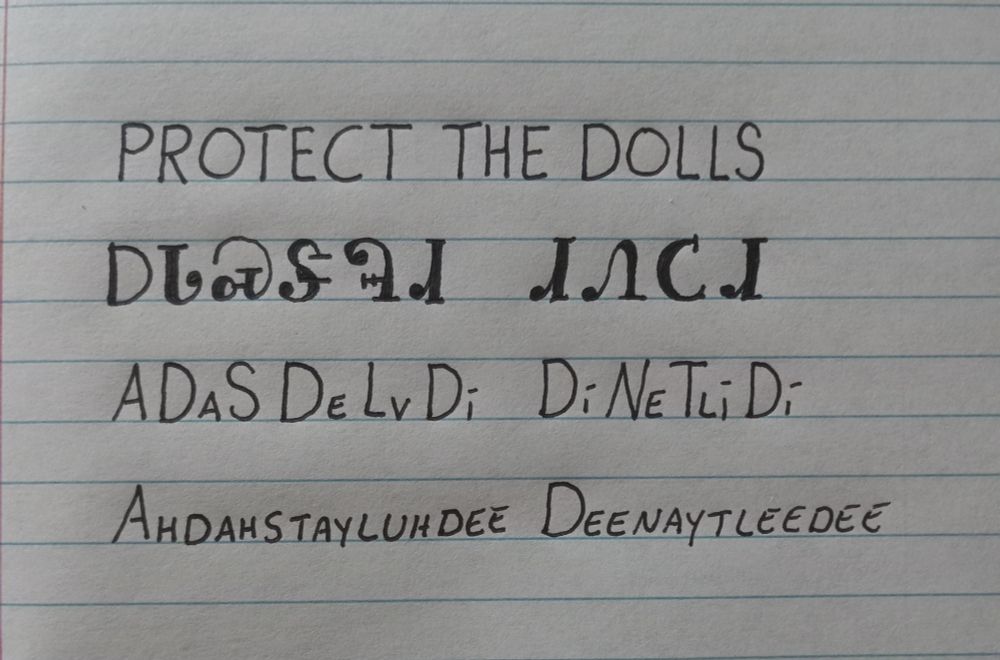 PROTECT THE DOLLS
ᎠᏓᏍᏕᎸᏗ ᏗᏁᏟᏗ
ADaS De Lv Di Di Ne Tli Di
AHDAHSTAYLUHDEE DEENAYTLEEDEE